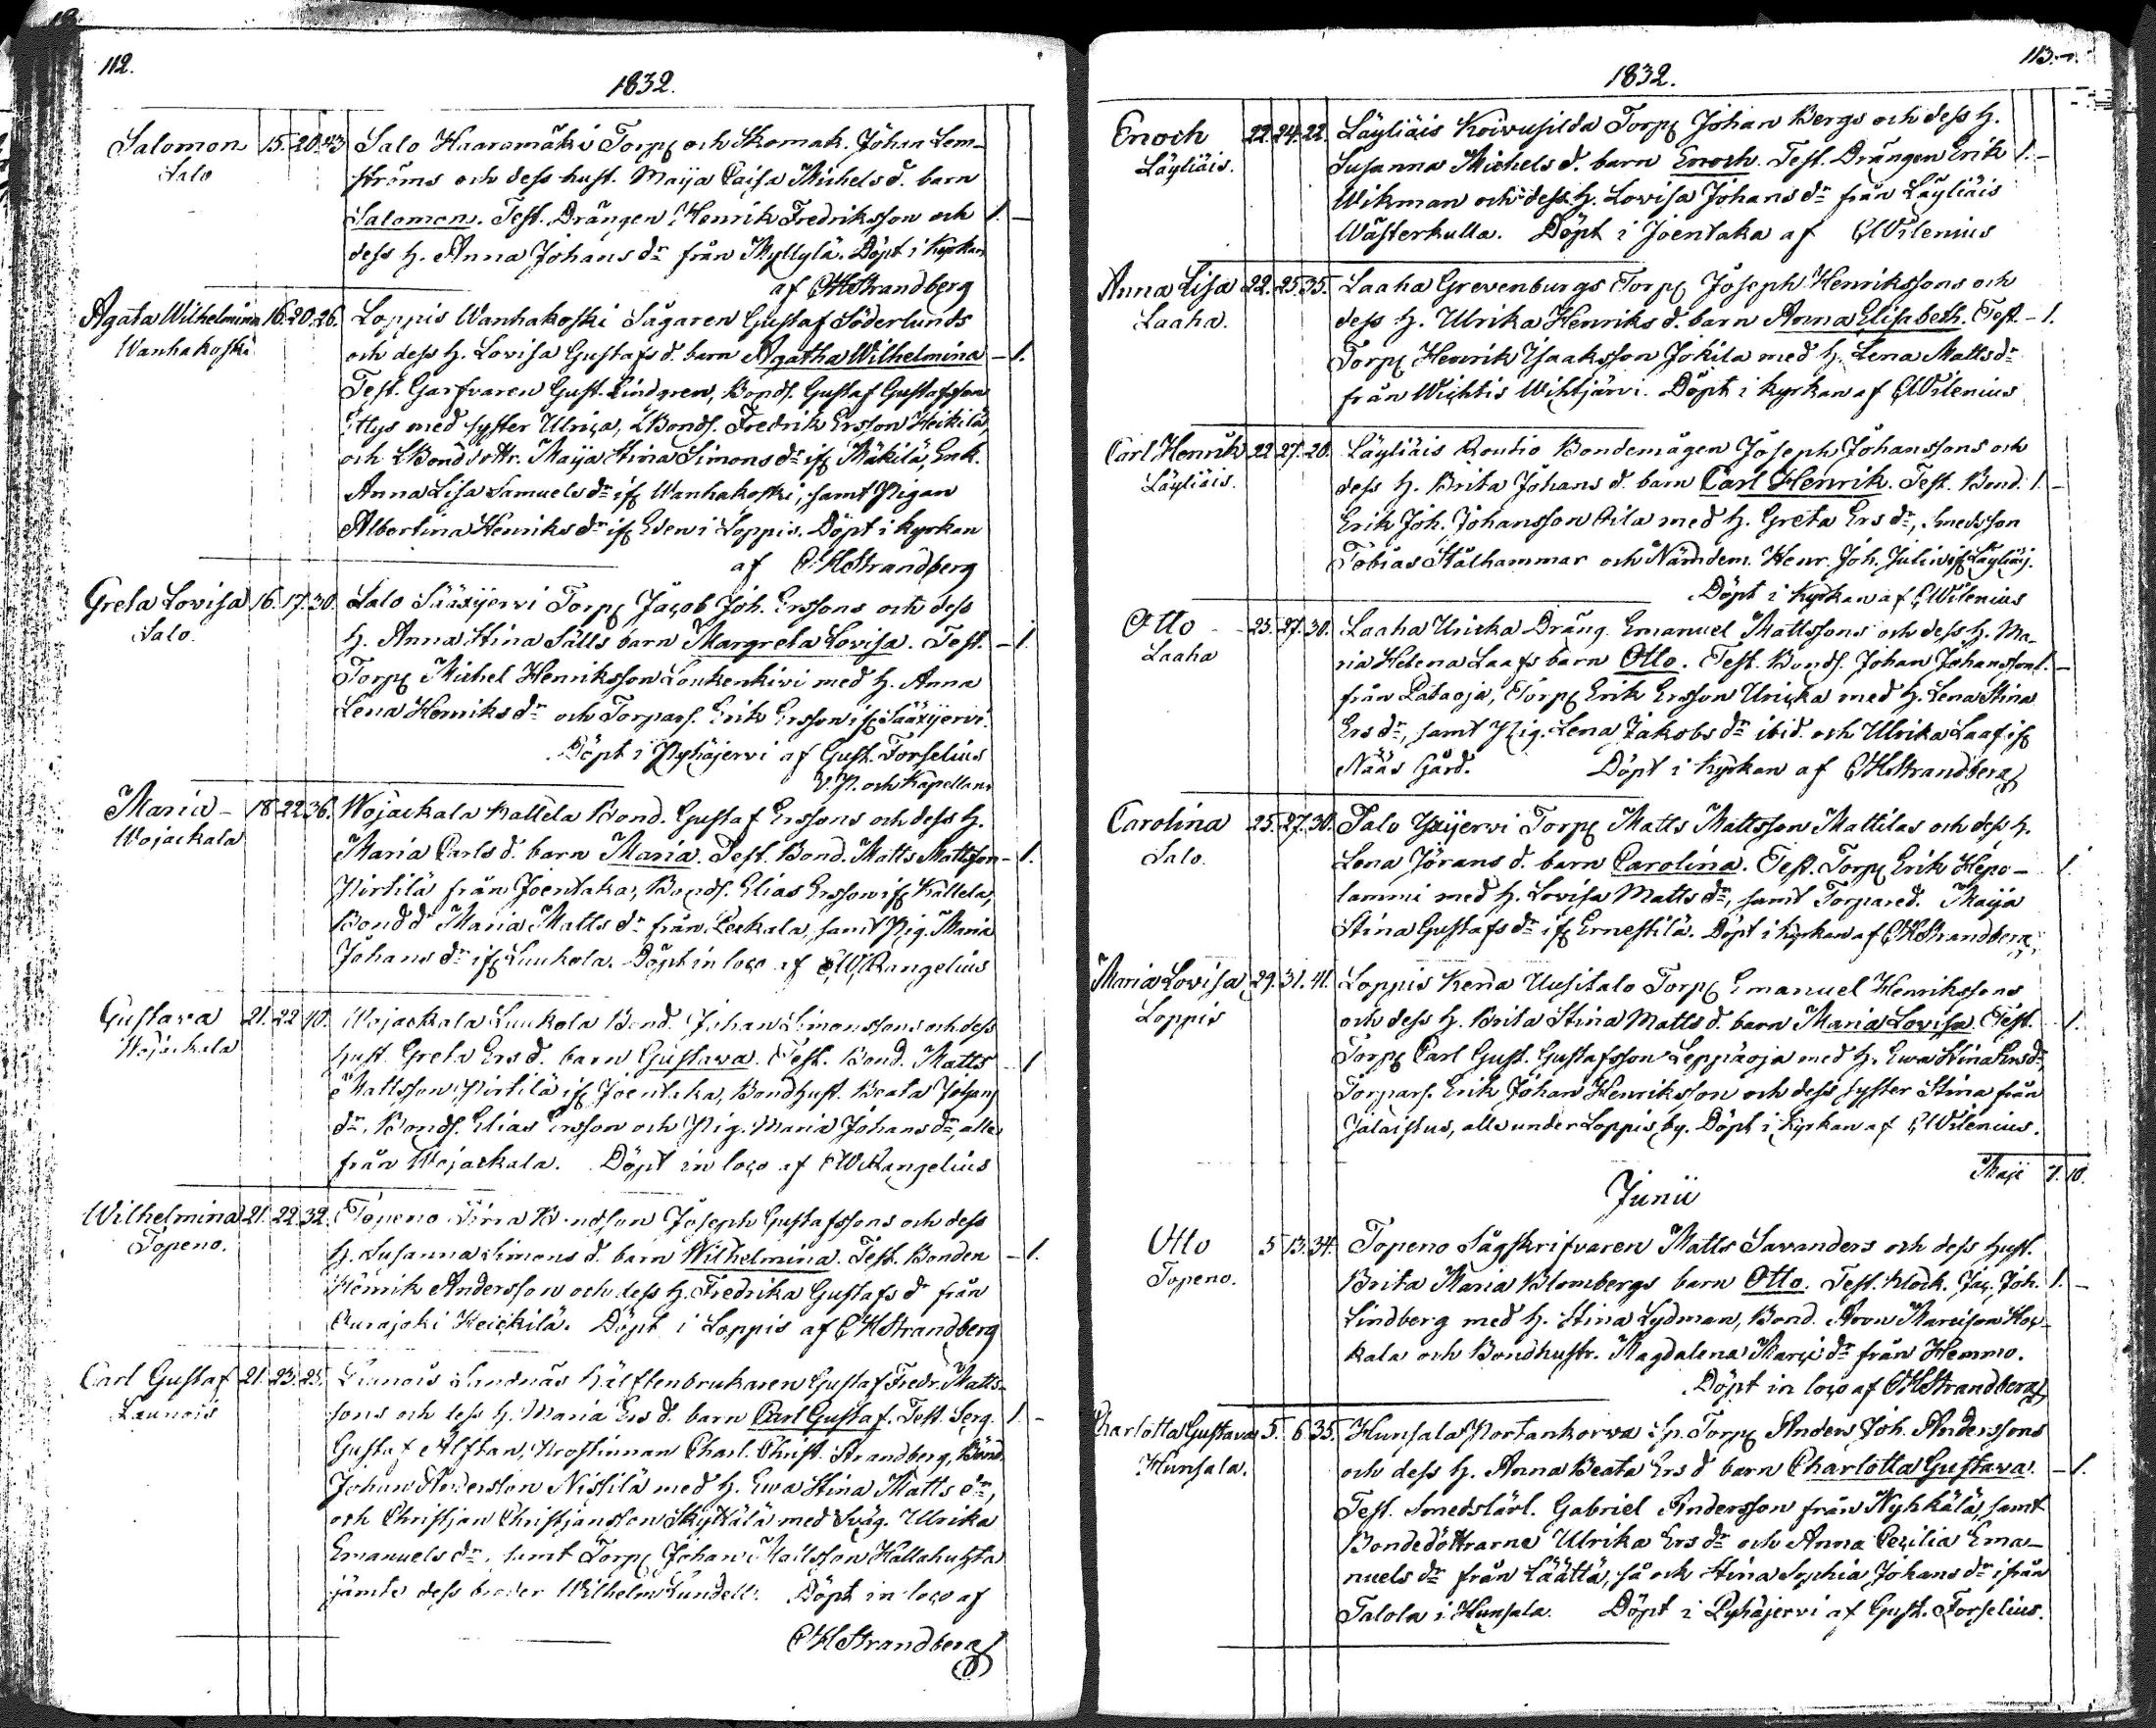 112.
1832.
Salomon 15. 20. 43 Salo Haaramäki Torp. och Skomak. Johan Lem-
Salo ströms och dess hust. Maija Caisa Michelsd. barn
Salomon. Test. Drängen Henrik Fredriksson och 1. -
dess h. Anna Johansdr från Myllylä. Döpt i Kyrkan
af CHStrandberg
Agata Wilhelmina 16. 20. 26. Loppis Wanhakoski Sågaren Gustaf Söderlunds
Wanhakoski och dess h. Lovisa Gustafsd. barn Agatha Wilhelmina - 1.
Test. Garfvaren Gust. Lindgren, Bonds. Gustaf Gustafsson
med syster Ulrica, Bonds. Fredrik Ersson Heikilä,
och Maija Stina Simonsdr if. Mäkilä, Enk.
Anna Lisa Samuelsdr if. Wanhakoski, samt Pigan
Albertina Henriksdr if. Eden i Loppis. Döpt i Kyrkan
af CHStrandberg
Greta Lovisa 16. 17. 30. Salo Sääxjervi Torp. Jacob Joh. Erssons och dess
Salo. h. Anna Stina Sälls barn Margreta Lovisa. Test. - 1.
Torp. Michel Henriksson Loukenkivi med h. Anna
Lena Henriksdr och Torpars. Erik Ersson if. Sääxjervi.
Döpt i Pyhäjervi af Gust. Forselius
V.P. och Kapellan.
Maria - 18. 22. 36. Wojackala Kallela Bond. Gustaf Erssons och dess h.
Wojackala Maria Carlsd. barn Maria. Test. Bond. Matts Mattsson - 1.
Pirtilä från Joentaka, Bonds. Elias Ersson if. Kallela,
Bondd. Maria Mattsdr från Leckala, samt Pig. Maria
Johansdr if. Luukola. Döpt in loco af CWRangelius
Gustava 21. 22. 40. Wojackala Luukola Bond. Johan Simonssons och dess
Wojackala hust. Greta Ersd. barn Gustava. Test. Bond. Matts - 1
Mattsson Pirtilä if. Joentaka, Bondhust. Beata Johans
dr, Bonds. Elias Ersson och Pig. Maria Johansdr, alla
från Wojackala. Döpt in loco af CWRangelius
Wilhelmina 21. 22. 32. Topeno Bondson Joseph Gustafssons och dess
Topeno. h. Susanna Simonsd. barn Wilhelmina. Test. Bonden - 1.
Henrik Andersson och dess h. Fredrika Gustafsdr från
Kurajoki Heickilä. Döpt i Loppis af CHStrandberg
Carl Gustaf 21. 23. 25. Launois Sandnäs hälftenbrukaren Gustaf Fredr. Matts-
Launois sons och dess h. Maria Ersd. barn Carl Gustaf. Test. Serg. 1. -
Gustaf Alftan, Prostinnan Charl. Christ. Strandberg, Bond.
Johan Andersson Nissilä med h. Ewa Stina Mattsdr,
och Christjan Christjansson Skyttälä med Swäg. Ulrika
Emanuelsdr, samt Torp. Johan Matsson Kallahuhta
jämte dess broder Wilhelm Lundell. Döpt in loco af
CHStrandberg
113.
1832.
Enoch 22. 24. 22. Läyliäis Koivusilda Torp. Johan Bergs och dess h.
Läyliäis. Susanna Michelsd. barn Enoch. Test. Drängen Erik 1. -
Wikman och dess h. Lovisa Johansdr från Läyliäis
Wästerkulla. Döpt i Joentaka af CWilenius
Anna Lisa 22. 25. 35. Laaha Grevenburgs Torp. Joseph Henrikssons och
Laaha. dess h. Ulrika Henriksd. barn Anna Elisabeth. Test. - 1.
Torp. Henrik Isaaksson Jokila med h. Lena Mattsdr
från Wichtis Wihtjärvi. Döpt i Kyrkan af CWilenius
Carl Henrik 22. 27. 20. Läyliäis Routio Bondemågen Joseph Johanssons och
Läyliäis. dess h. Brita Johansd. barn Carl Henrik. Test. Bond. 1. -
Erik Joh. Johansson Aila med h. Greta Ersdr, Smedsson
Tobias Stålhammar och Nämdem. Henr. Joh. Juliin if. Läyliäis.
Döpt i Kyrkan af CWilenius
Otto - 25. 27. 30. Laaha Uricka Dräng. Emanuel Mattssons och dess h. Ma-
Laaha ria Helena Laafs barn Otto. Test. Bonds. Johan Johansson 1. -
från Pataoja, Torp. Erik Ersson Uricka med h. Lena Stina
Ersdr, samt Pig. Lena Jakobsdr ibid. och Ulrika Laaf if.
Nääs Gård. Döpt i Kyrkan af CHStrandberg
Carolina 25. 27. 30. Salo Yxijervi Torp. Matts Mattsson Mattilas och dess h.
Salo. Lena Jöransd. barn Carolina. Test. Torp. Erik Hepo- - 1
lammi med h. Lovisa Mattsdr, samt Torpared. Maija
Stina Gustafsdr if. Ernestilä. Döpt i Kyrkan af CHStrandberg
Maria Lovisa 29. 31. 41. Loppis Kena Uusitalo Torp. Emanuel Henrikssons
Loppis och dess h. Brita Stina Mattsd. barn Maria Lovisa. Test. - 1.
Torp. Carl Gust. Gustafsson Leppäoja med h. Ewa Stina Ersdr,
Torpars. Erik Johan Henriksson och dess syster Stina från
Jalaistus, alla under Loppis by. Döpt i Kyrkan af CWilenius.
Maji 7. 10.
Junii
Otto 5 13. 34. Topeno Sågskrifvaren Matts Savanders och dess hust.
Topeno. Brita Maria Blombergs barn Otto. Test. Klock. Jac. Joh. 1. -
Lindberg med h. Stina Lydman, Bond. Aron Marcisson Hoc-
kala och Bondhustr. Magdalena Marcidr från Hemmo.
Döpt in loco af CHStrandberg
Charlotta Gustava 5. 6. 35. Hunsala Portankorva Sp. Torp. Anders Joh. Anderssons
Hunsala. och dess h. Anna Beata Ersd barn Charlotta Gustava. - 1.
Test. Smedslärl. Gabriel Andersson från Nyhkälä, samt
Bondedöttrarne Ulrika Ersdr och Anna Cecilia Ema-
nuelsdr från Läättä, så och Stina Sophia Johansdr ifrån
Talola i Hunsala. Döpt i Pyhäjervi af Gust. Forselius.